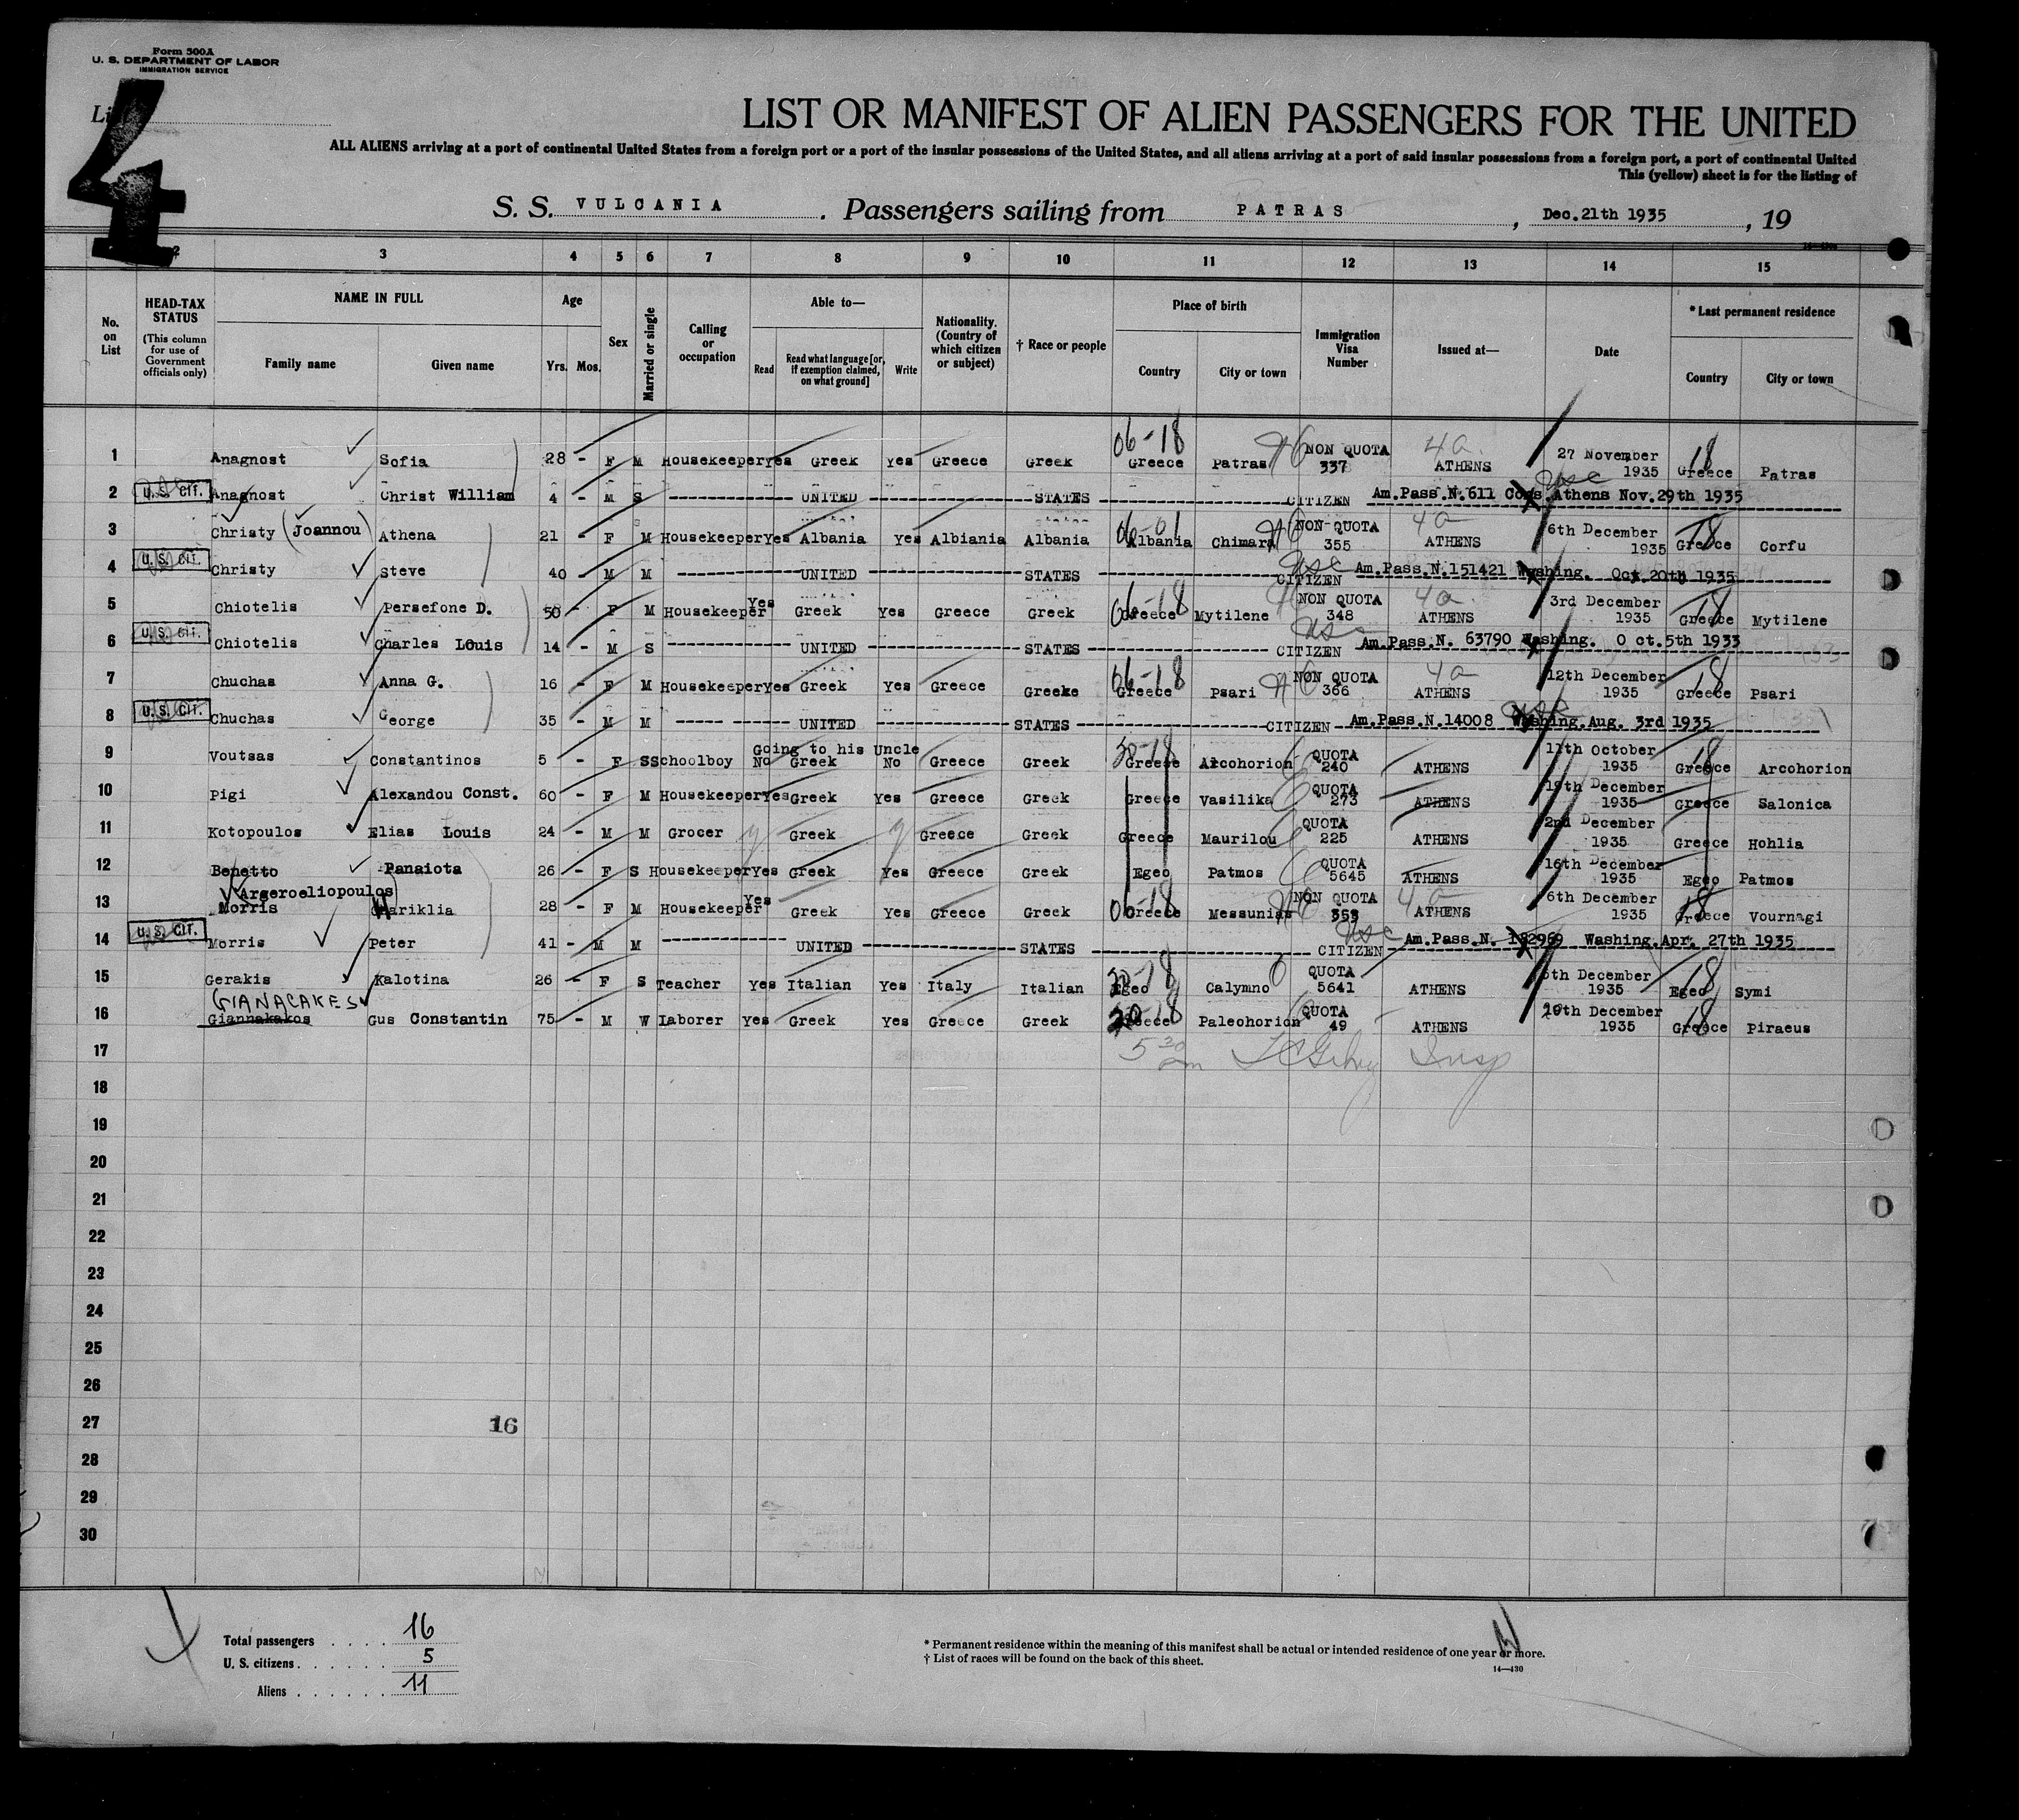 Form 500A
U. S. DEPARTMENT OF LABOR
IMMIGRATION SERVICE
4
LIST OR MANIFEST OF ALIEN PASSENGERS FOR THE UNITED
ALL ALIENS arriving at a port of continental United States from a foreign port or a port of the insular possessions of the United States, and all aliens arriving at a port of said insular possessions from a foreign port, a port of continental United
This (yellow) sheet is for the listing of
S. S. VULCANIA . Passengers sailing from PATRAS , Dec.21th 1935 , 19
2 3 4 5 6 7 8 9 10 11 12 13 14 15
No. on List
HEAD-TAX STATUS
(This column for use of Government officials only)
NAME IN FULL
Family name Given name
Age
Yrs. Mos.
Sex
Married or single
Calling or occupation
Able to—
Read
Read what language [or, if exemption claimed, on what ground]
Write
Nationality. (Country of which citizen or subject)
† Race or people
Place of birth
Country City or town
Immigration Visa Number
Issued at—
Date
* Last permanent residence
Country City or town
06-18 4a
1 Anagnost Sofia 28 - F M Housekeeper Yes Greek Yes Greece Greek Greece Patras NON QUOTA 337 ATHENS 27 November 1935 18 Greece Patras
2 U.S. Cit. Anagnost Christ William 4 - M S UNITED STATES CITIZEN Am.Pass.N.611 Cons.Athens Nov.29th 1935
3 Christy (Joannou) Athena 21 - F M Housekeeper Yes Albania Yes Albiania Albania Albania Chimara NON-QUOTA 355 4a ATHENS 6th December 1935 18 Greece Corfu
4 U.S. Cit. Christy Steve 40 - M M UNITED STATES CITIZEN Am.Pass.N.151421 Washing. Oct.20th 1935
5 Chiotelis Persefone D. 50 - F M Housekeeper Yes Greek Yes Greece Greek 06-18 Greece Mytilene NON QUOTA 348 4a ATHENS 3rd December 1935 18 Greece Mytilene
6 U.S. Cit. Chiotelis Charles Louis 14 - M S UNITED STATES CITIZEN Am.Pass.N. 63790 Washing. O ct.5th 1933
7 Chuchas Anna G. 16 - F M Housekeeper Yes Greek Yes Greece Greeke 06-18 Greece Psari NON QUOTA 366 4a ATHENS 12th December 1935 18 Greece Psari
8 U.S. Cit. Chuchas George 35 - M M UNITED STATES CITIZEN Am.Pass.N.14008 Washing.Aug. 3rd 1935
9 Voutsas Constantinos 5 - F S Schoolboy Going to his Uncle No Greek No Greece Greek 30-18 Greece Arcohorion QUOTA 240 ATHENS 11th October 1935 18 Greece Arcohorion
10 Pigi Alexandou Const. 60 - F M Housekeeper Yes Greek Yes Greece Greek Greece Vasilika QUOTA 273 ATHENS 19th December 1935 Greece Salonica
11 Kotopoulos Elias Louis 24 - M M Grocer Greek Greece Greek Greece Maurilou QUOTA 225 ATHENS 2nd December 1935 Greece Hohlia
12 Benetto Panaiota 26 - F S Housekeeper Yes Greek Yes Greece Greek Egeo Patmos QUOTA 5645 ATHENS 16th December 1935 Egeo Patmos
Argeroeliopoulos
13 Morris Hariklia 28 - F M Housekeeper Yes Greek Yes Greece Greek 06-18 Greece Messunias NON QUOTA 353 4a ATHENS 6th December 1935 18 Greece Vournagi
14 U.S. Cit. Morris Peter 41 - M M UNITED STATES CITIZEN Am.Pass.N. 182969 Washing.Apr. 27th 1935
15 Gerakis Kalotina 26 - F S Teacher Yes Italian Yes Italy Italian Egeo Calymno QUOTA 5641 ATHENS 6th December 1935 18 Egeo Symi
GIANACAKES
16 Giannakakos Gus Constantin 75 - M W Laborer Yes Greek Yes Greece Greek Greece Paleohorion QUOTA 49 ATHENS 20th December 1935 18 Greece Piraeus
17 Insp
18
19
20
21
22
23
24
25
26
27 16
28
29
30
Total passengers . . . . 16
U. S. citizens . . . . . . 5
Aliens . . . . . . 11
* Permanent residence within the meaning of this manifest shall be actual or intended residence of one year or more.
† List of races will be found on the back of this sheet.
14—430